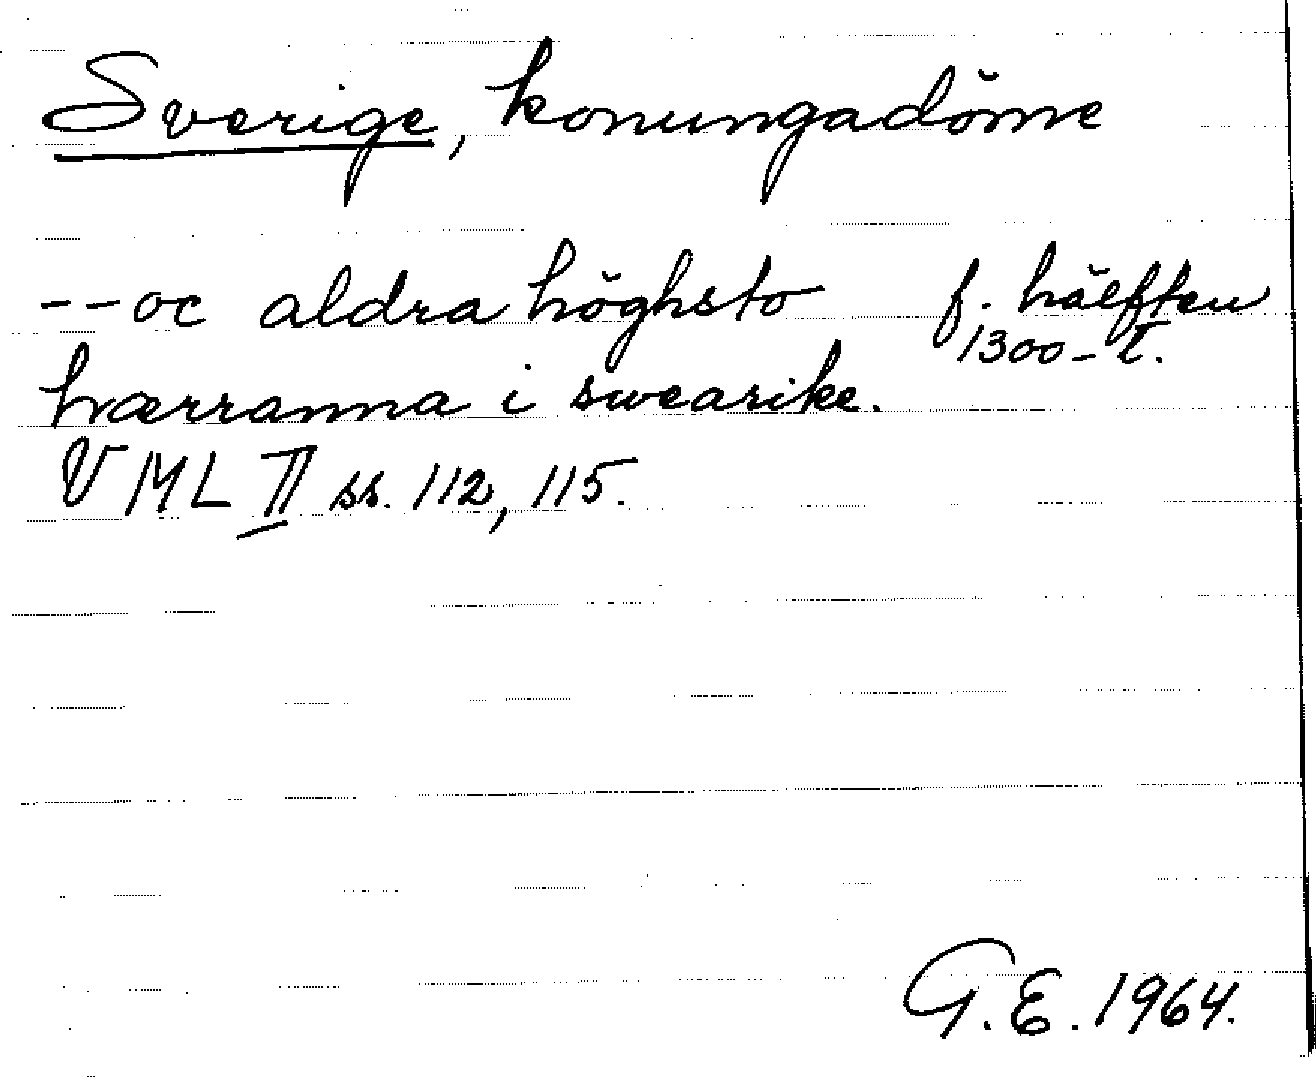 Sverige, konungadöme
--oc aldra höghsto f. hälften
1300-t.
hærranna i swearike.
VML II ss. 112, 115.
G.E. 1964.